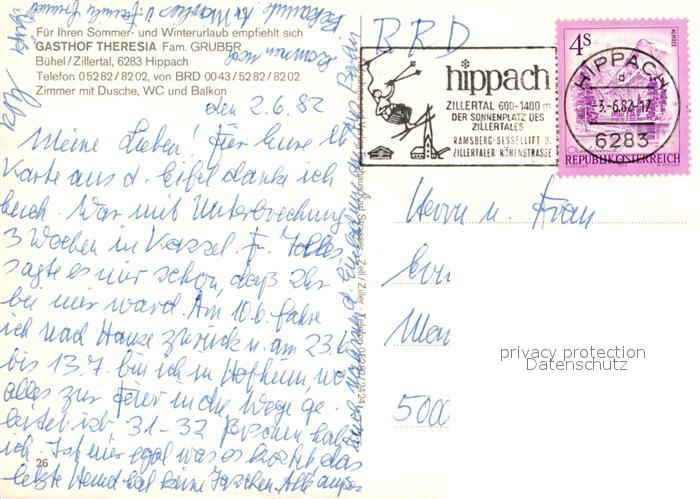 Für Ihren Sommer- und Winterurlaub empfiehlt sich
GASTHOF THERESIA Fam. GRUBER
Bühel/Zillertal, 6283 Hippach
Telefon 05282/8202, von BRD 0043/5282/8202
Zimmer mit Dusche, WC und Balkon
den 2.6.82
Meine Lieben, für Eure lb
Karte aus d. Eifel danke ich
Euch. War mit Unterbrechung
3 Wochen in Kassel. Fr.
sagte es mir schon, daß Ihr
bei mir ward. Am 10.6. fahre
ich nach Hause zurück u. am 23.6
bis 13.7. bin ich in Hofheim, wo
alles zur Feier in die Wege ge-
leitet ist. 31-32 Personen hab
ich. Ist mir egal was es kostet das
letzte Hemd hat keine Taschen. Alle
26
BRD
hippach
ZILLERTAL 600-1400 m
DER SONNENPLATZ DES
ZILLERTALES
RAMSBERG-SESSELLIFT U.
ZILLERTALER HÖHENSTRASSE
4S
ALMSEE
HIPPACH
d
-3.-6.82-17
6283
REPUBLIK ÖSTERREICH
Herrn u. Frau
5000
privacy protection
Datenschutz